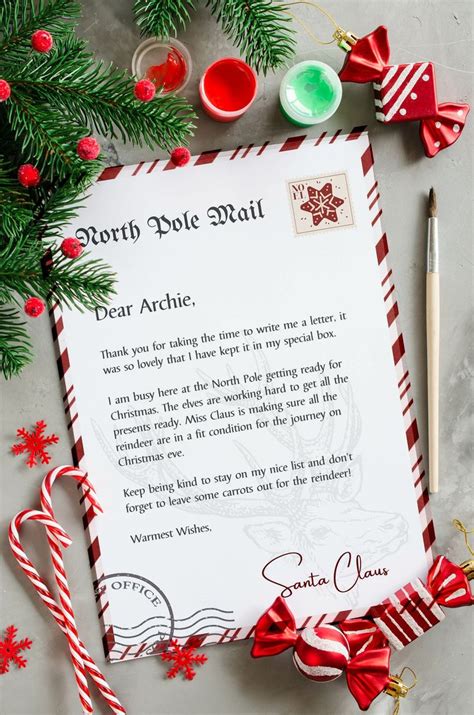 North Pole Mail
Dear Archie,
Thank you for taking the time to write me a letter, it
was so lovely that I have kept it in my special box.
I am busy here at the North Pole getting ready for
Christmas. The elves are working hard to get all the
presents ready. Miss Claus is making sure all the
reindeer are in a fit condition for the journey on
Christmas eve.
Keep being kind to stay on my nice list and don't
forget to leave some carrots out for the reindeer!
Warmest Wishes,
Santa Claus
OFFICE